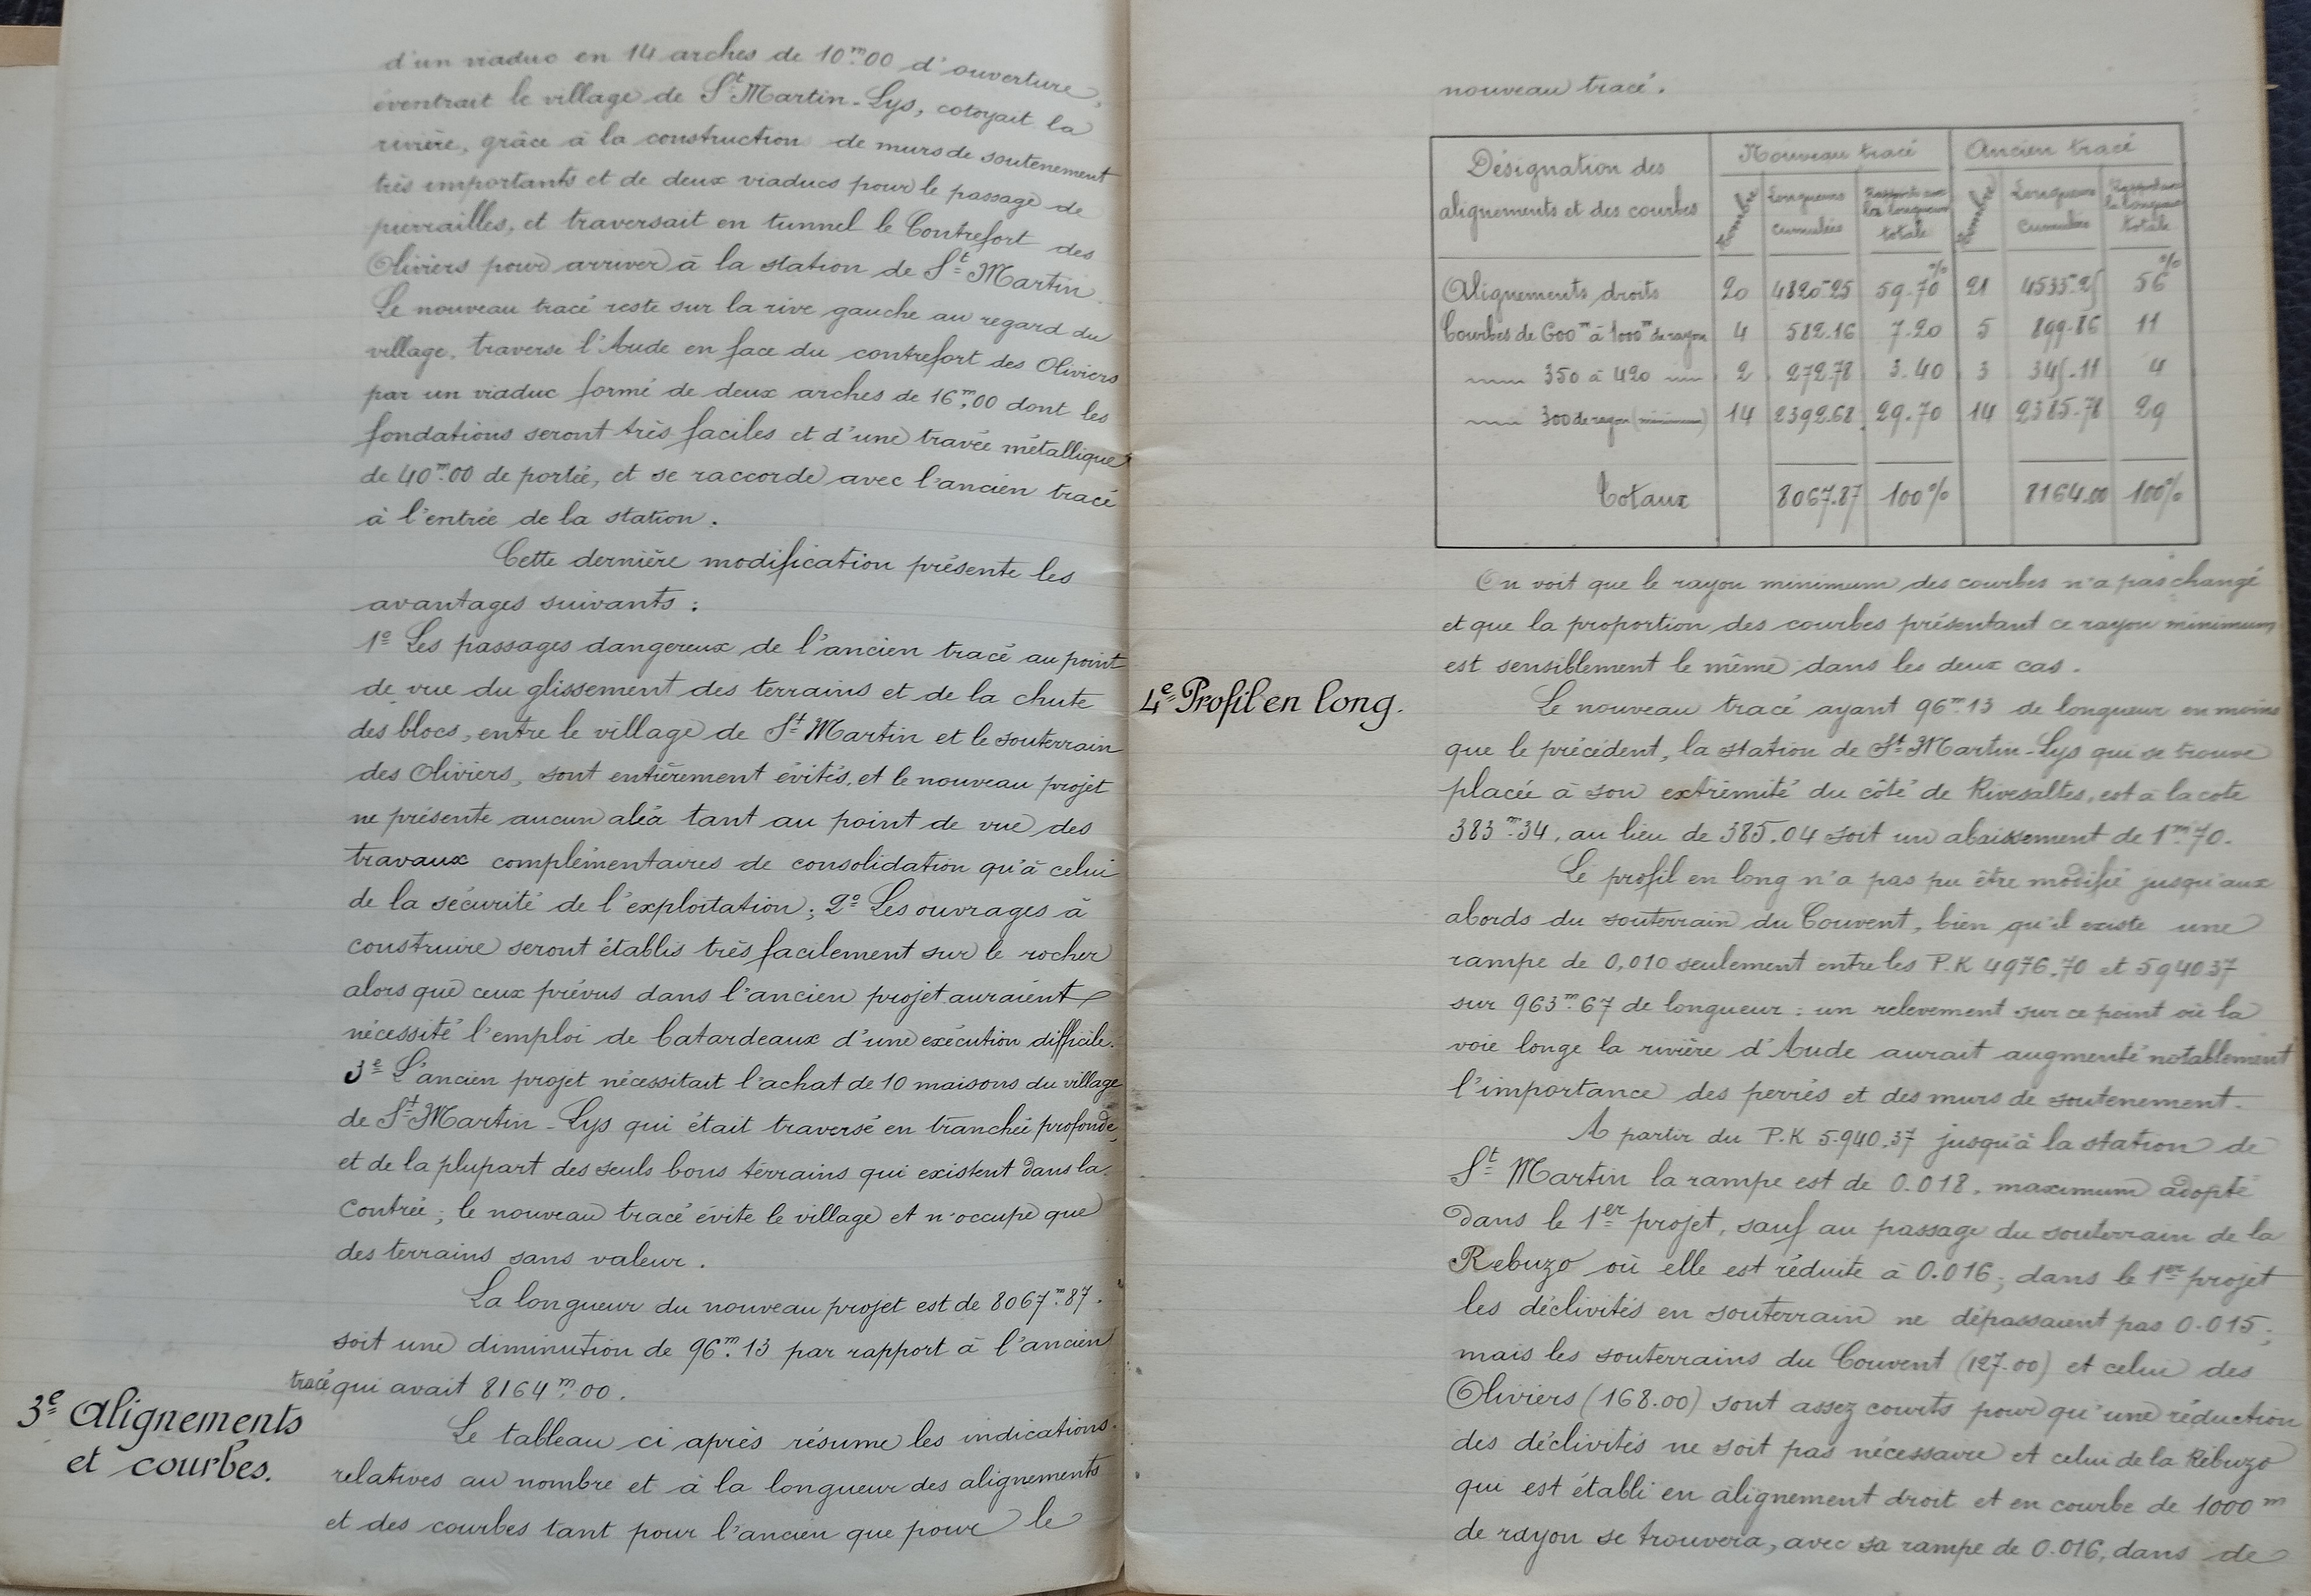 d'un viaduc en 14 arches de 10.m00 d'ouverture,
éventrait le village de St Martin-Lys, cotoyait la
rivière, grâce à la construction de murs de soutenement
très importants et de deux viaducs pour le passage de
pierrailles, et traversait en tunnel le Contrefort des
Oliviers pour arriver à la station de St Martin.
Le nouveau tracé reste sur la rive gauche au regard du
village, traverse l'Aude en face du contrefort des Oliviers
par un viaduc formé de deux arches de 16.m00 dont les
fondations seront très faciles et d'une travée métallique
de 40.m00 de portée, et se raccorde avec l'ancien tracé
à l'entrée de la station.
Cette dernière modification présente les
avantages suivants :
1º Les passages dangereux de l'ancien tracé au point
de vue du glissement des terrains et de la chute
des blocs, entre le village de St Martin et le souterrain
des Oliviers, sont entièrement évités, et le nouveau projet
ne présente aucun aléa tant au point de vue des
travaux complémentaires de consolidation qu'à celui
de la sécurité de l'exploitation; 2º Les ouvrages à
construire seront établis très facilement sur le rocher
alors que ceux prévus dans l'ancien projet auraient
nécessité l'emploi de batardeaux d'une exécution difficile.
3e L'ancien projet nécessitait l'achat de 10 maisons du village
de St Martin-Lys qui était traversé en tranchée profonde,
et de la plupart des seuls bons terrains qui existent dans la
Contrée; le nouveau tracé évite le village et n'occupe que
des terrains sans valeur.
La longueur du nouveau projet est de 8067.m87.
soit une diminution de 96.m13 par rapport à l'ancien
tracé qui avait 8164.m00.
3e Alignements
et courbes.
Le tableau ci après résume les indications
relatives au nombre et à la longueur des alignements
et des courbes tant pour l'ancien que pour le
nouveau tracé.
Désignation des alignements et des courbes | Nouveau tracé | Ancien tracé
Nombre | Longueurs cumulées | Rapports aux la longueur totale | Nombre | Longueurs cumulées | Rapport aux la longueur totale
Alignements droits | 20 | 4820.25 | 59.70 % | 21 | 4535.25 | 56 %
Courbes de 600m à 1000m de rayon | 4 | 582.16 | 7.20 | 5 | 899.86 | 11
350 à 420 | 2 | 272.78 | 3.40 | 3 | 345.11 | 4
300 de rayon (minimum) | 14 | 2392.68 | 29.70 | 14 | 2385.78 | 29
Totaux | 8067.87 | 100% | 8164.00 | 100%
On voit que le rayon minimum des courbes n'a pas changé
et que la proportion des courbes présentant ce rayon minimum
est sensiblement le même dans les deux cas.
4e Profil en long.
Le nouveau tracé ayant 96.m13 de longueur en moins
que le précédent, la station de St Martin-Lys qui se trouve
placée à son extrémité du côté de Rivesaltes, est à la cote
383.m34, au lieu de 385.04 soit un abaissement de 1.m70.
Le profil en long n'a pas pu être modifié jusqu'aux
abords du souterrain du Couvent, bien qu'il existe une
rampe de 0,010 seulement entre les P.K 4976.70 et 5940.37
sur 963.m67 de longueur : un relevement sur ce point où la
voie longe la rivière d'Aude aurait augmenté notablement
l'importance des perrés et des murs de soutenement.
A partir du P.K 5.940.37 jusqu'à la station de
St Martin la rampe est de 0.018, maximum adopté
dans le 1er projet, sauf au passage du souterrain de la
Rebuzo où elle est réduite à 0.016; dans le 1er projet
les déclivités en souterrain ne dépassaient pas 0.015;
mais les souterrains du Couvent (127.00) et celui des
Oliviers (168.00) sont assez courts pour qu'une réduction
des déclivités ne soit pas nécessaire et celui de la Rebuzo
qui est établi en alignement droit et en courbe de 1000m
de rayon se trouvera, avec sa rampe de 0.016, dans de